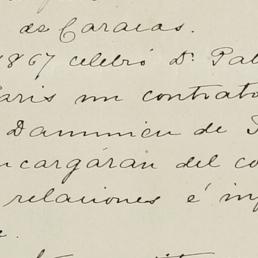 de Caracas.
1867 celebró Dn. Pa
aris un contrato
Dammieu de
ncargáran del co
relaciones é in